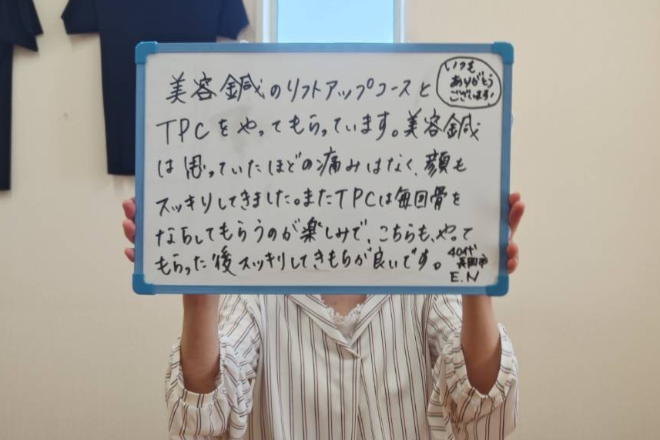 美容鍼のリフトアップコースと
いつも
ありがとう
ございます!
TPCをやってもらっています。美容鍼
は思っていたほどの痛みはなく、顔も
スッキリしてきました。またTPCは毎回骨を
ならしてもらうのが楽しみで、こちらも、やって
もらった後スッキリしてきもちが良いです。
40代
長岡市
E.N